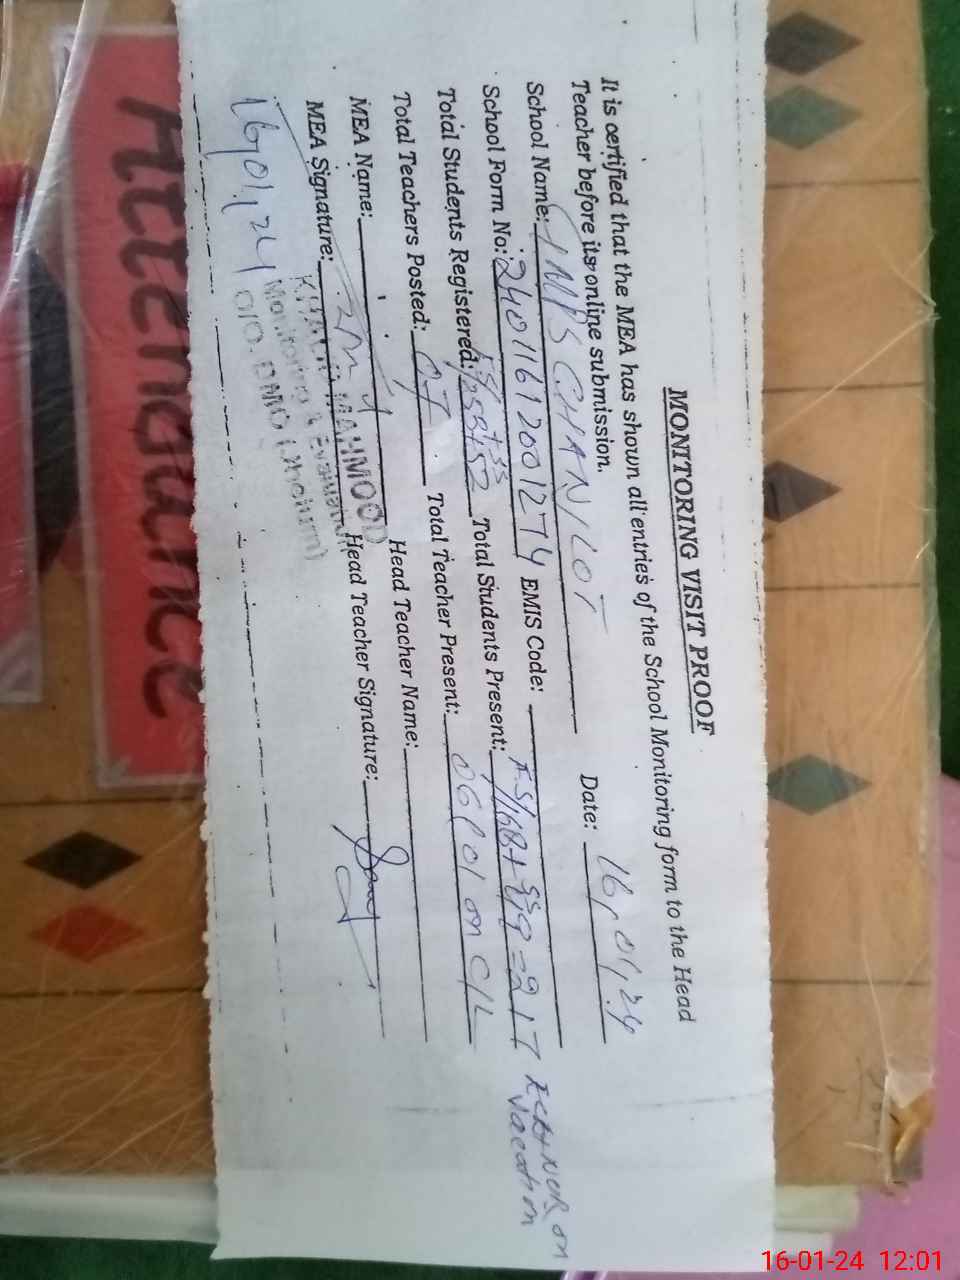 MONITORING VISIT PROOF
It is certified that the MEA has shown all entries of the School Monitoring form to the Head
Teacher before its online submission.
Date: 16,01,24
School Name: GMPS CHANILOT
School Form No: 24011612001274 EMIS Code:
Total Students Registered: Total Students Present: 168+ =217
ECE+NUR on
vacation
Total Teachers Posted: 07 Total Teacher Present: 06 P 01 on C/L
MEA Name: Head Teacher Name:
MEA Signature: Head Teacher Signature:
MAHMOOD
Monitoring & Evaluation
O/O. DMO (Jhelum)
16,01,24
Attendance
16-01-24 12:01